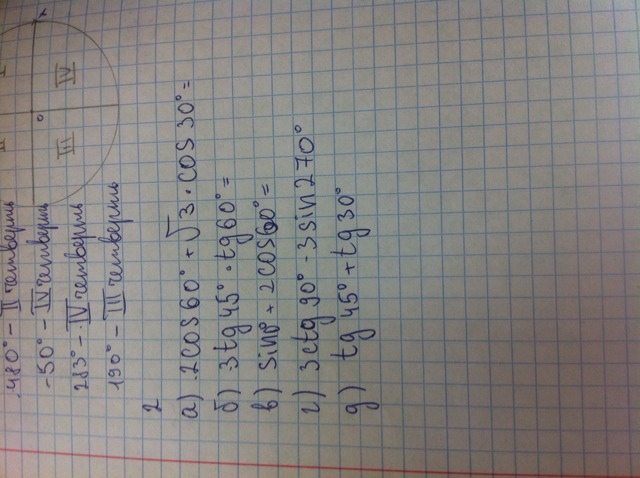 II
I
0
x
III
IV
480° – II четверть
-50° – IV четверть
283° – IV четверть
190° – III четверть
2
а) 2cos60° + √3 · cos30° =
б) 3tg45° · tg60° =
в) sin0° + 2cos60° =
г) 3ctg90° - 3sin270°
д) tg45° + tg30°